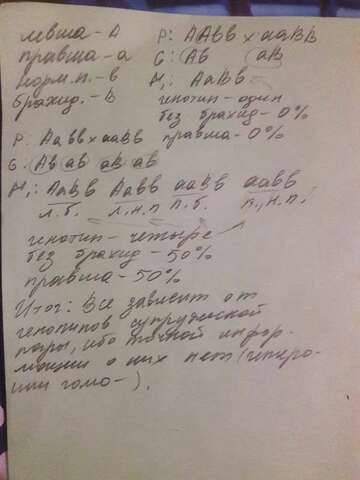 левша - А
правша - а
норм.п. - в
брахид. - В
P: ААвв х ааВВ
G: Ав аВ
H₁: АаВв
генотип - один
без брахид - 0%
правша - 0%
P: Аавв х ааВв
G: Ав ав аВ ав
H₁: АаВв Аавв ааВв аавв
л.б. л.н.п п.б. п., н.п.
генотип - четыре
без брахид - 50%
правша - 50%
Итог: Все зависит от
генотипов супружеской
пары, ибо точной инфор-
мации о них нет (гетеро-
или гомо-).